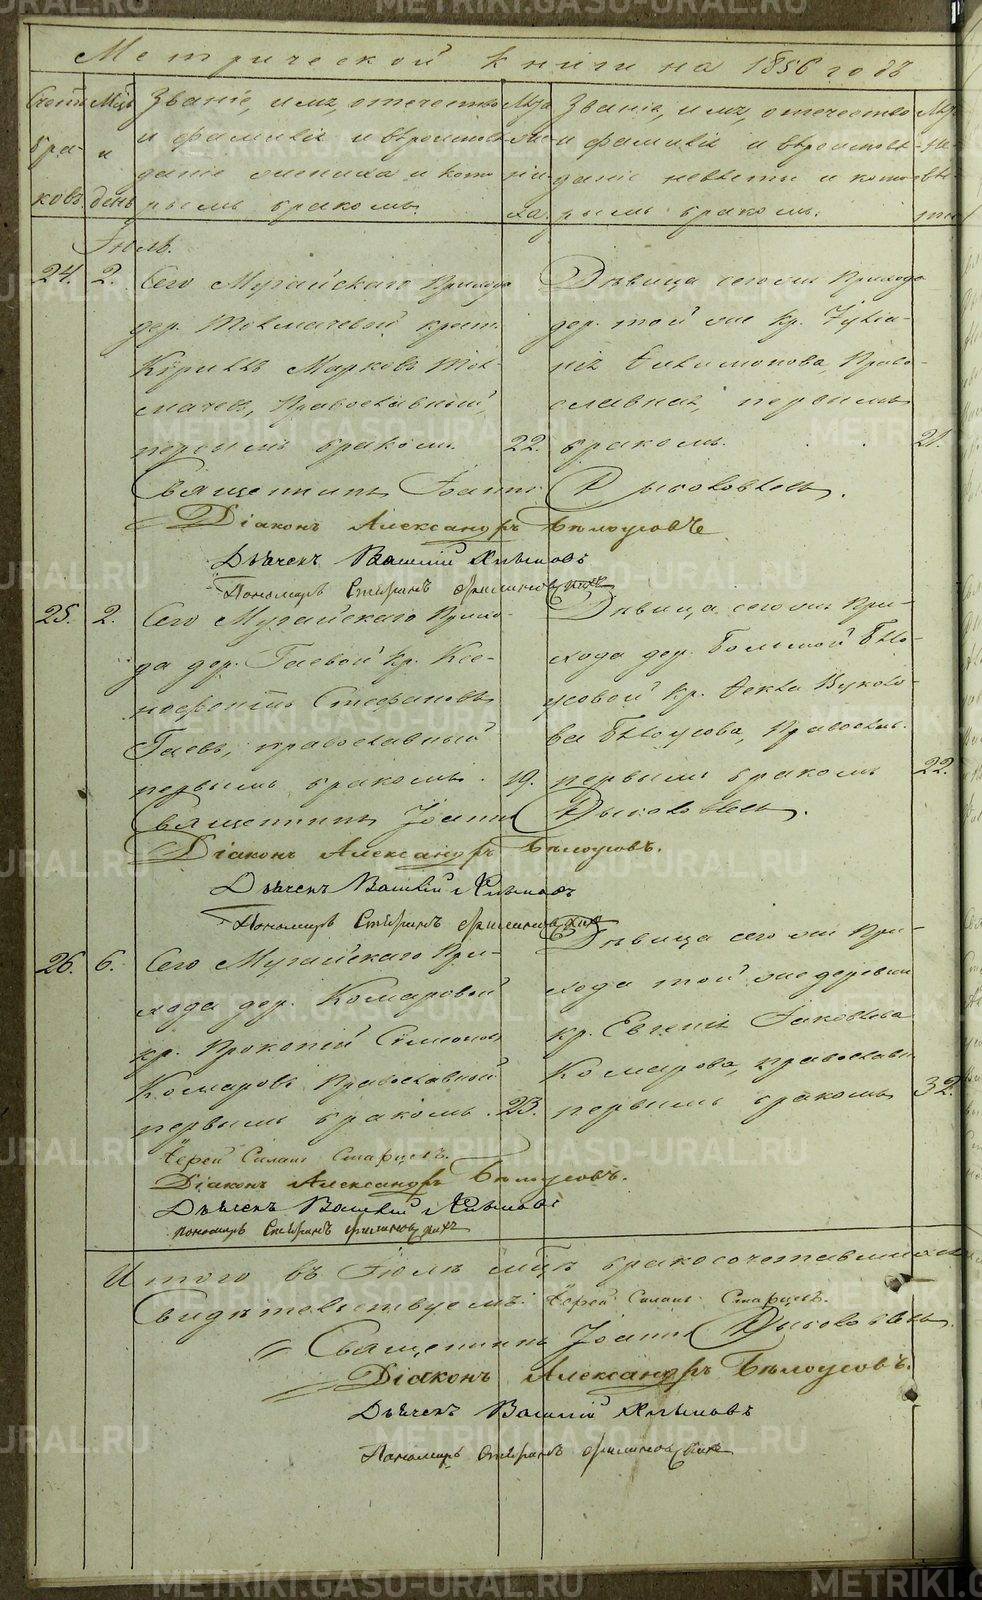 Метрической книги на 1856 годъ
Счетъ браковъ
Мѣц. и день
Званіе, имя, отечество и фамилія и вѣроисповѣданіе жениха и которымъ бракомъ.
Лѣта жениха.
Званіе, имя, отечество и фамилія и вѣроисповѣданіе невѣсты и которымъ бракомъ.
Лѣта невѣсты
Іюль.
24. 2.
Сего Мугайскаго Прихода
дер. Толмачевой крест.
Кѷриллъ Марковъ Тол-
мачевъ, православный,
первымъ бракомъ. 22.
Дѣвица сего же Прихода
дер. той же кр. Іуліа-
нія Филимонова, Право-
славная, первымъ
бракомъ. 21.
Священникъ Іоаннъ Дыможовъ.
Діаконъ Александръ Бѣлоусовъ
Дьячекъ Василій
Пономарь Стефанъ
25. 2.
Сего Мугайскаго Прихо-
да дер. Гаевой кр. Ксе-
нофонтъ Стефановъ
Гаевъ, православный
первымъ бракомъ. 19.
Дѣвица, сего же При-
хода дер. Большой Бѣло-
усовой кр. Фекла Вуколо-
ва Бѣлоусова, Православ.
первымъ бракомъ 22.
Священникъ Іоаннъ
Діаконъ Александръ Бѣлоусовъ.
Дьячекъ Василій
Пономарь Стефанъ
26. 6.
Сего Мугайскаго При-
хода дер. Комаровой
кр. Прокопій Симеоновъ
Комаровъ Православной
первымъ бракомъ. 23.
Дѣвица сего же При-
хода той же деревни
кр. Евгенія Іаковлева
Комарова, православн.
первымъ бракомъ 32.
Іерей Старцевъ.
Діаконъ Александръ Бѣлоусовъ.
Дьячекъ Василій
Пономарь Стефанъ
Итого въ Іюлѣ мцѣ бракосочетавшихся
Свидѣтельствуемъ: Іерей Старцевъ.
Священникъ Іоаннъ
Діаконъ Александръ Бѣлоусовъ.
Дьячекъ Василій
Пономарь Стефанъ
METRIKI.GASO-URAL.RU